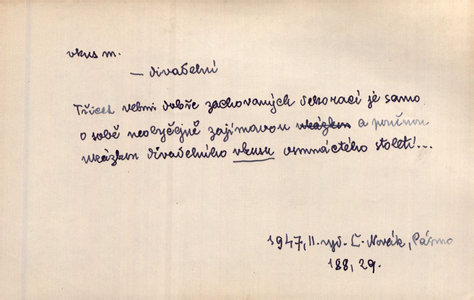 vkus m.
— divadelní
Třicet velmi dobře zachovaných dekorací je samo
o sobě neobyčejně zajímavou ukázkou a poučnou
ukázkou divadelního vkusu osmnáctého století...
1947, II. vyd. L. Novák, Pásmo
188, 29.